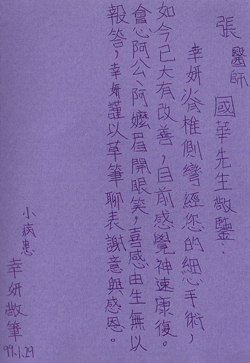 張醫師 國華先生敬鑒：
幸妍脊椎側彎經您的細心手術，
如今已大有改善，目前感覺神速康復。
會心阿公、阿嬤眉開眼笑，喜感由生無以
報答，幸妍謹以草筆聊表謝意與感恩。
小病患
幸妍敬筆
97.1.29